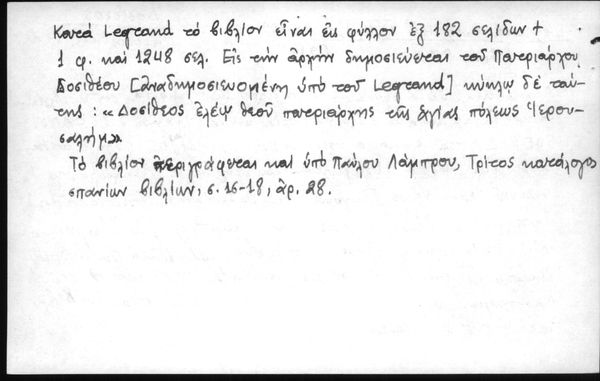 Κατά Legrand τό βιβλίον εἶναι εἰς φύλλον ἐξ 182 σελίδων +
1 φ. καί 1248 σελ. Εἰς τήν ἀρχήν δημοσιεύεται τοῦ Πατριάρχου
Δοσιθέου [ἀναδημοσιευομένη ὑπό τοῦ Legrand] κύκλῳ δέ ταύ-
της : «Δοσίθεος ἐλέῳ θεοῦ πατριάρχης τῆς ἁγίας πόλεως Ἱερου-
σαλήμ»
Τό βιβλίον περιγράφεται καί ὑπό Παύλου Λάμπρου, Τρίτος κατάλογος
σπανίων βιβλίων, σ. 16-18, ἀρ. 28.